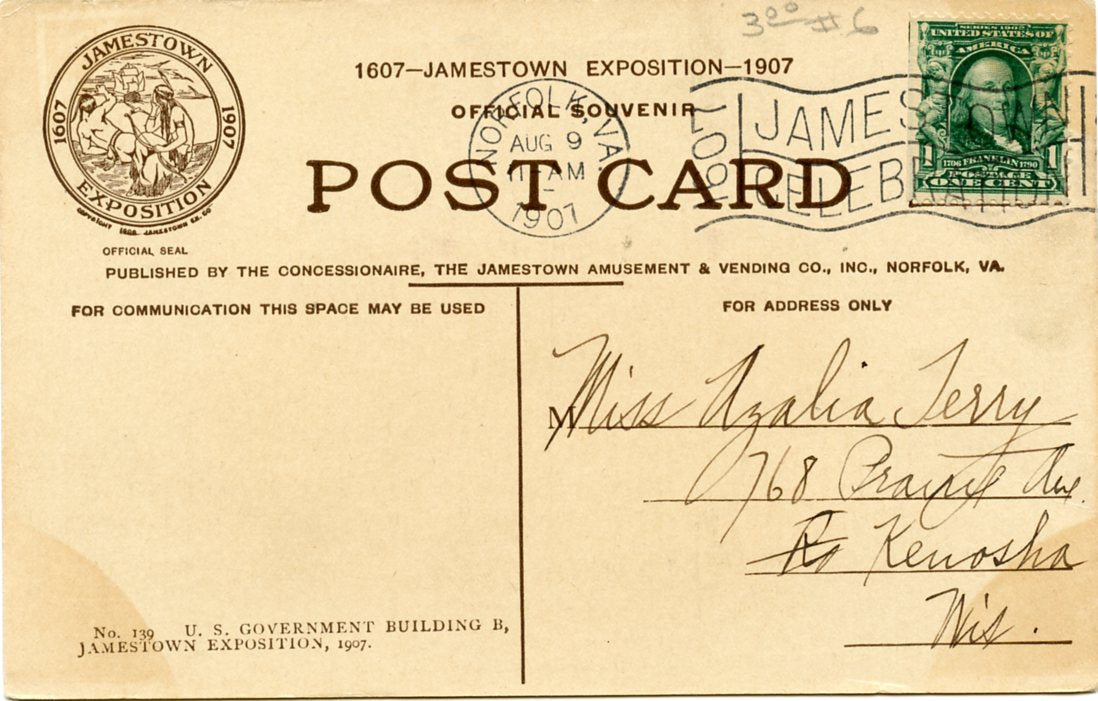 3⁰⁰ #6
JAMESTOWN
1607
1907
EXPOSITION
COPYRIGHT 1906 JAMESTOWN EX. CO
OFFICIAL SEAL
1607—JAMESTOWN EXPOSITION—1907
OFFICIAL SOUVENIR
POST CARD
NORFOLK, VA.
AUG 9
11-AM
1907
1907
JAMES
CELEB
SERIES 1902
UNITED STATES OF
AMERICA
1706 FRANKLIN 1790
1 POSTAGE 1
ONE CENT
PUBLISHED BY THE CONCESSIONAIRE, THE JAMESTOWN AMUSEMENT & VENDING CO., INC., NORFOLK, VA.
FOR COMMUNICATION THIS SPACE MAY BE USED
FOR ADDRESS ONLY
M Miss Azalia Terry
768 Prairie Ave.
Kenosha
Wis.
No. 139 U. S. GOVERNMENT BUILDING B,
JAMESTOWN EXPOSITION, 1907.